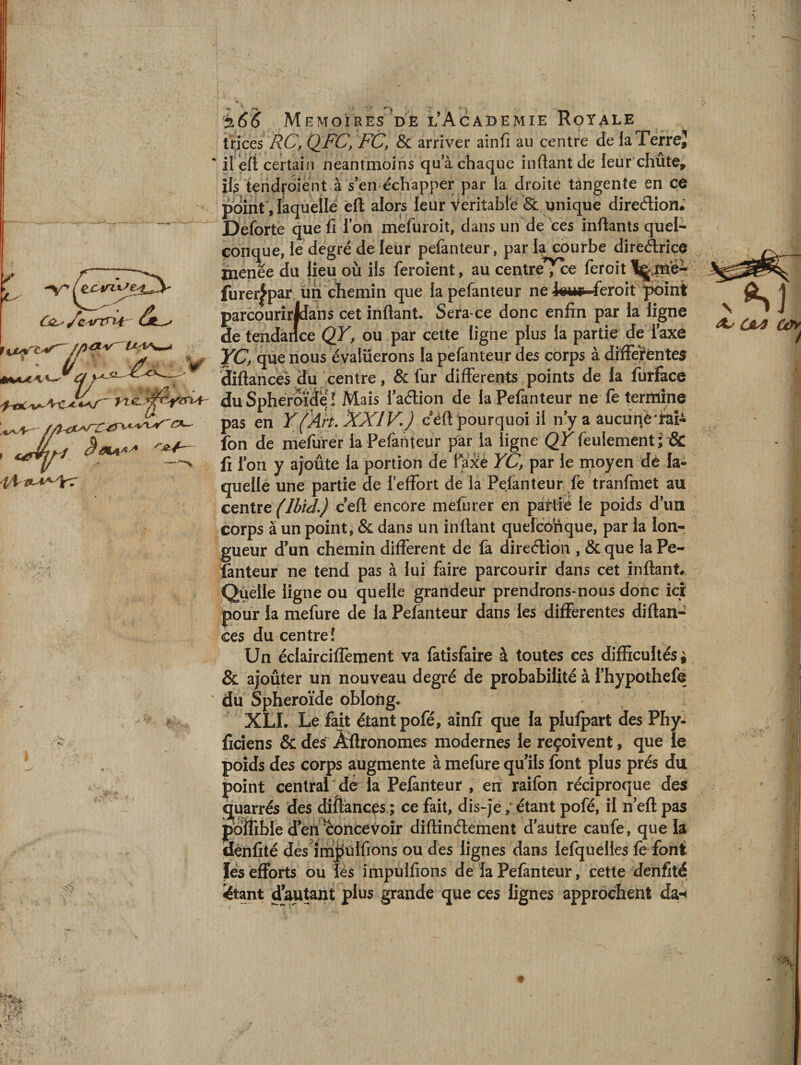 266 MEMOIRES DE L'ACADEMIE ROYALE
trices RC, QFC, FC, & arriver ainſi au centre de la Terre,
il eſt certain neantmoins qu'à chaque inſtant de leur chûte,
ils tendroient à s'en échapper par la droite tangente en ce
point, laquelle eſt alors leur veritable & unique direction.
Deſorte que ſi l'on meſuroit, dans un de ces inſtants quel-
conque, le degré de leur peſanteur, par la courbe directrice
menée du lieu où ils ſeroient, au centre, ce ſeroit meſurer
par un chemin que la peſanteur ne leur feroit point
parcourir dans cet inſtant. Sera-ce donc enfin par la ligne
de tendance QY, ou par cette ligne plus la partie de l'axe
YC, que nous évaluerons la peſanteur des corps à differentes
diſtances du centre, & ſur differents points de la ſurface
du Spheroïde? Mais l'action de la Peſanteur ne ſe termine
pas en Y (Art. XXIV.) c'eſt pourquoi il n'y a aucune rai-
ſon de meſurer la Peſanteur par la ligne QY ſeulement; &
ſi l'on y ajoûte la portion de l'axe YC, par le moyen de la-
quelle une partie de l'effort de la Peſanteur ſe tranſmet au
centre (Ibid.) c'eſt encore meſurer en partie le poids d'un
corps à un point, & dans un inſtant quelconque, par la lon-
gueur d'un chemin different de ſa direction, & que la Pe-
ſanteur ne tend pas à lui faire parcourir dans cet inſtant.
Quelle ligne ou quelle grandeur prendrons-nous donc ici
pour la meſure de la Peſanteur dans les differentes diſtan-
ces du centre?
Un éclairciſſement va ſatisfaire à toutes ces difficultés,
& ajoûter un nouveau degré de probabilité à l'hypotheſe
du Spheroïde oblong.
XLI. Le fait étant poſé, ainſi que la pluſpart des Phy-
ſiciens & des Aſtronomes modernes le reçoivent, que le
poids des corps augmente à meſure qu'ils ſont plus prés du
point central de la Peſanteur, en raiſon réciproque des
quarrés des diſtances; ce fait, dis-je, étant poſé, il n'eſt pas
poſſible d'en concevoir diſtinctement d'autre cauſe, que la
denſité des impulſions ou des lignes dans leſquelles ſe font
les efforts ou les impulſions de la Peſanteur, cette denſité
étant d'autant plus grande que ces lignes approchent da-